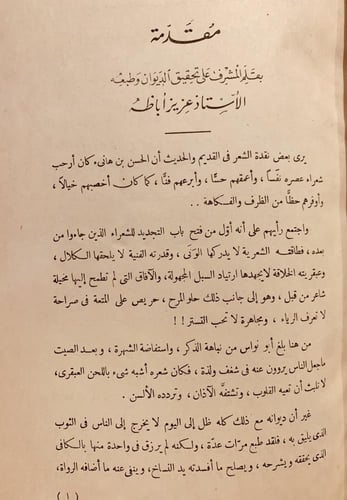 مقدمة
بقلم المشرف على تحقيق الديوان وطبعه
الأستاذ عزيز أباظه
يرى بعض نقدة الشعر فى القديم والحديث أن الحسن بن هانى كان أرحب
شعراء عصره نفسًا ، وأعمقهم حسًّا ، وأبرعهم فنًّا ، كما كان أخصبهم خيالًا ،
وأوفرهم حظًّا من الظرف والفكاهة . .
واجتمع رأيهم على أنه أول من فتح باب التجديد للشعراء الذين جاءوا من
بعده ، فطاقته الشعرية لا يدركها الونى ، وقدرته الفنية لا يلحقها الكلال ،
وعبقريته الخلاقة لا يجهدها ارتياد السبل المجهولة ، والآفاق التى لم تطمح إليها مخيلة
شاعر من قبل ، وهو إلى جانب ذلك حلو المرح ، حريص على المتعة فى صراحة
لا تعرف الرياء ، ومجاهرة لا تحب التستر ! !
من هنا بلغ أبو نواس من نباهة الذكر ، واستفاضة الشهرة ، وبعد الصيت
ما جعل الناس يروون عنه فى شغف ولذة ، فكان شعره أشبه شىء باللحن العبقرى ،
لا تلبث أن تعيه القلوب ، وتشتفّه الآذان ، وتردده الألسن .
غير أن ديوانه مع ذلك كله ظل إلى اليوم لا يخرج إلى الناس فى الثوب
الذى يليق به ، فلقد طبع مرّات عدّة ، ولكنه لم يرزق فى واحدة منها بالكافى
الذى يحققه ويشرحه ، ويصلح ما أفسدته يد النساخ ، وينفى عنه ما أضافه الرواة ،
( ١ )